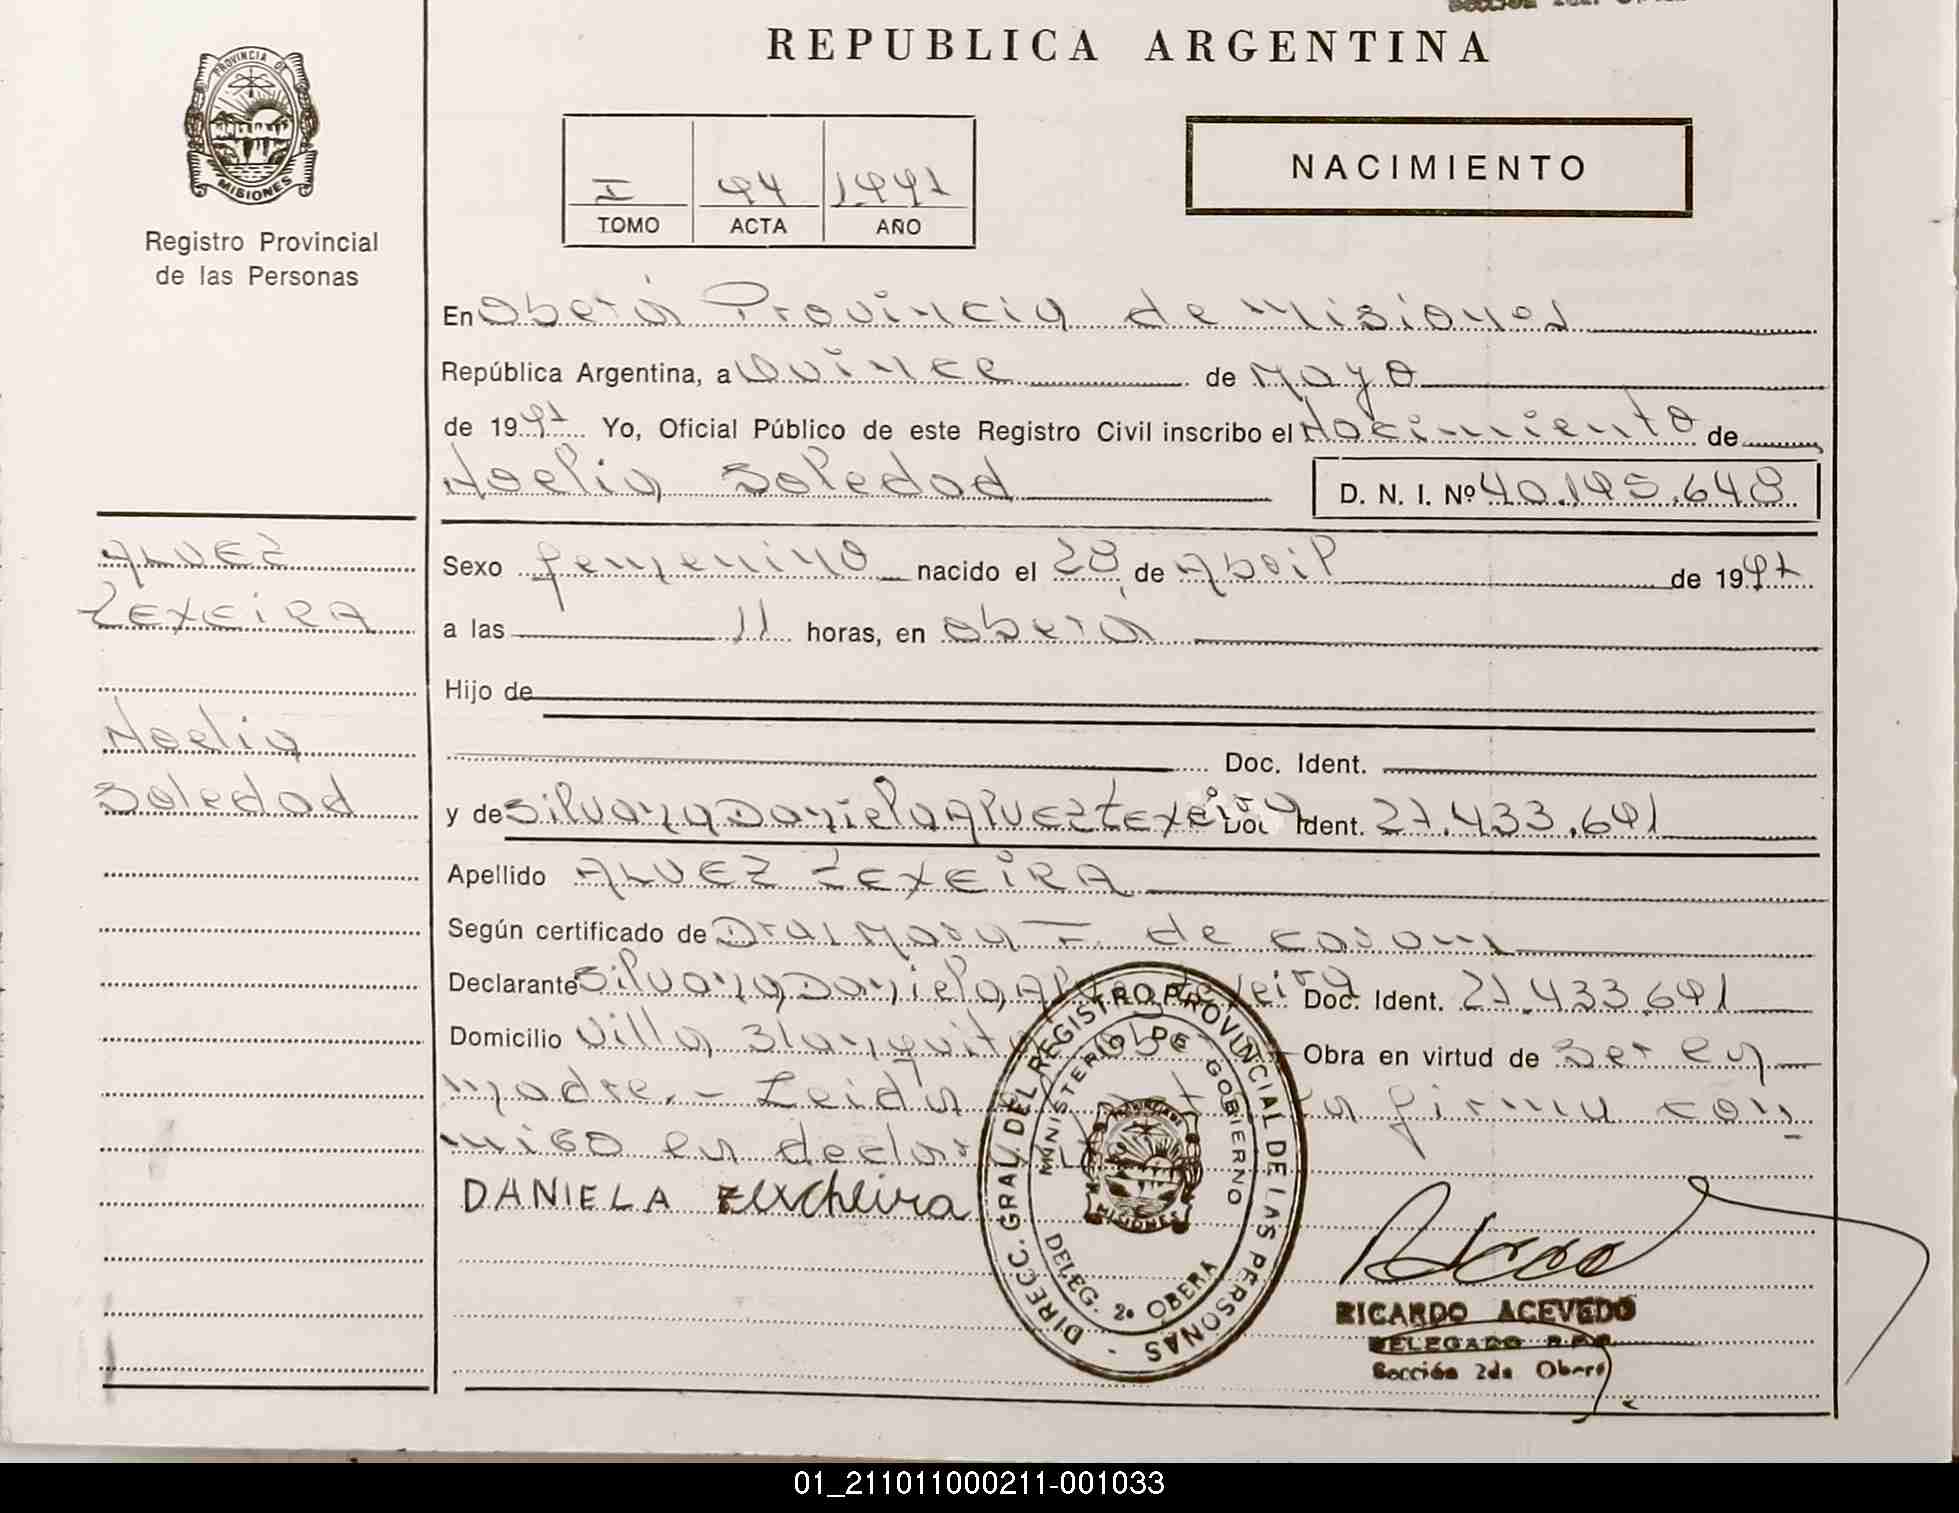 REPUBLICA ARGENTINA
PROVINCIA DE
MISIONES
Registro Provincial
de las Personas
I 94 1.997
TOMO ACTA AÑO
NACIMIENTO
En Oberá Provincia de Misiones
República Argentina, a Quince de Mayo
de 1997 Yo, Oficial Público de este Registro Civil inscribo el Nacimiento de
Noelia Soledad D. N. I. Nº 40.195.648
ALVEZ
TEXEIRA
Noelia
Soledad
Sexo femenino nacido el 28 de Abril de 1997
a las 11 horas, en Oberá
Hijo de
Doc. Ident.
y de Silvana Daniela Alvez Texeira Doc Ident. 27.433.691
Apellido ALVEZ TEXEIRA
Según certificado de Dra. F. de
Declarante Silvana Daniela Alvez Texeira Doc. Ident. 27.433.691
Domicilio Villa Blanquita Obe Obra en virtud de Ser la
madre.- Leida la firma con
migo la decla
DANIELA
DIRECC. GRAL. DEL REGISTRO PROVINCIAL DE LAS PERSONAS -
MINISTERIO DE GOBIERNO
MISIONES
DELEG. 2ª OBERA
RICARDO ACEVEDO
DELEGADO R.P.P.
Sección 2da Oberá
01_211011000211-001033